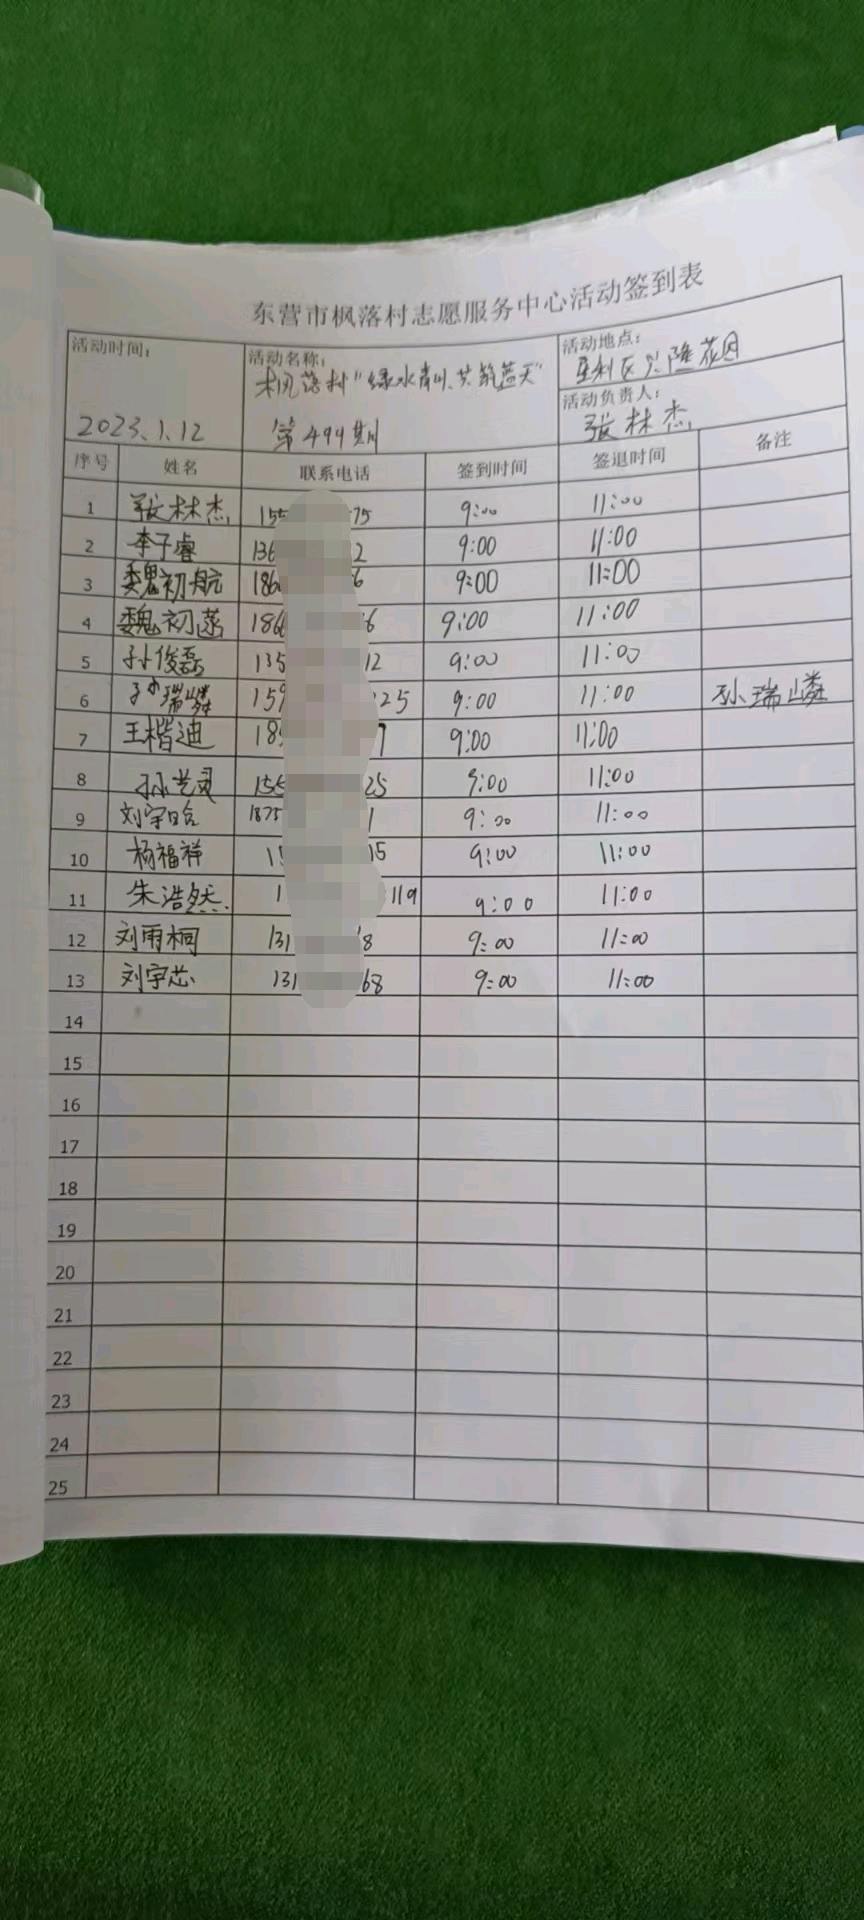 东营市枫落村志愿服务中心活动签到表
活动时间：
2023.1.12
活动名称：
枫落村"绿水青山、共筑蓝天"
第499期
活动地点：
垦利区兴隆花园
活动负责人：
张林杰
序号 姓名 联系电话 签到时间 签退时间 备注
1 张林杰 155 75 9:00 11:00
2 李子睿 136 2 9:00 11:00
3 魏初航 186 6 9:00 11:00
4 魏初 186 6 9:00 11:00
5 孙俊磊 135 12 9:00 11:00
6 孙瑞嶙 159 25 9:00 11:00 孙瑞嶙
7 王楷迪 18 7 9:00 11:00
8 孙艺灵 155 25 9:00 11:00
9 刘宇晗 1875 1 9:00 11:00
10 杨福祥 15 15 9:00 11:00
11 朱浩然 1 119 9:00 11:00
12 刘雨桐 131 68 9:00 11:00
13 刘宇芯 131 68 9:00 11:00
14
15
16
17
18
19
20
21
22
23
24
25